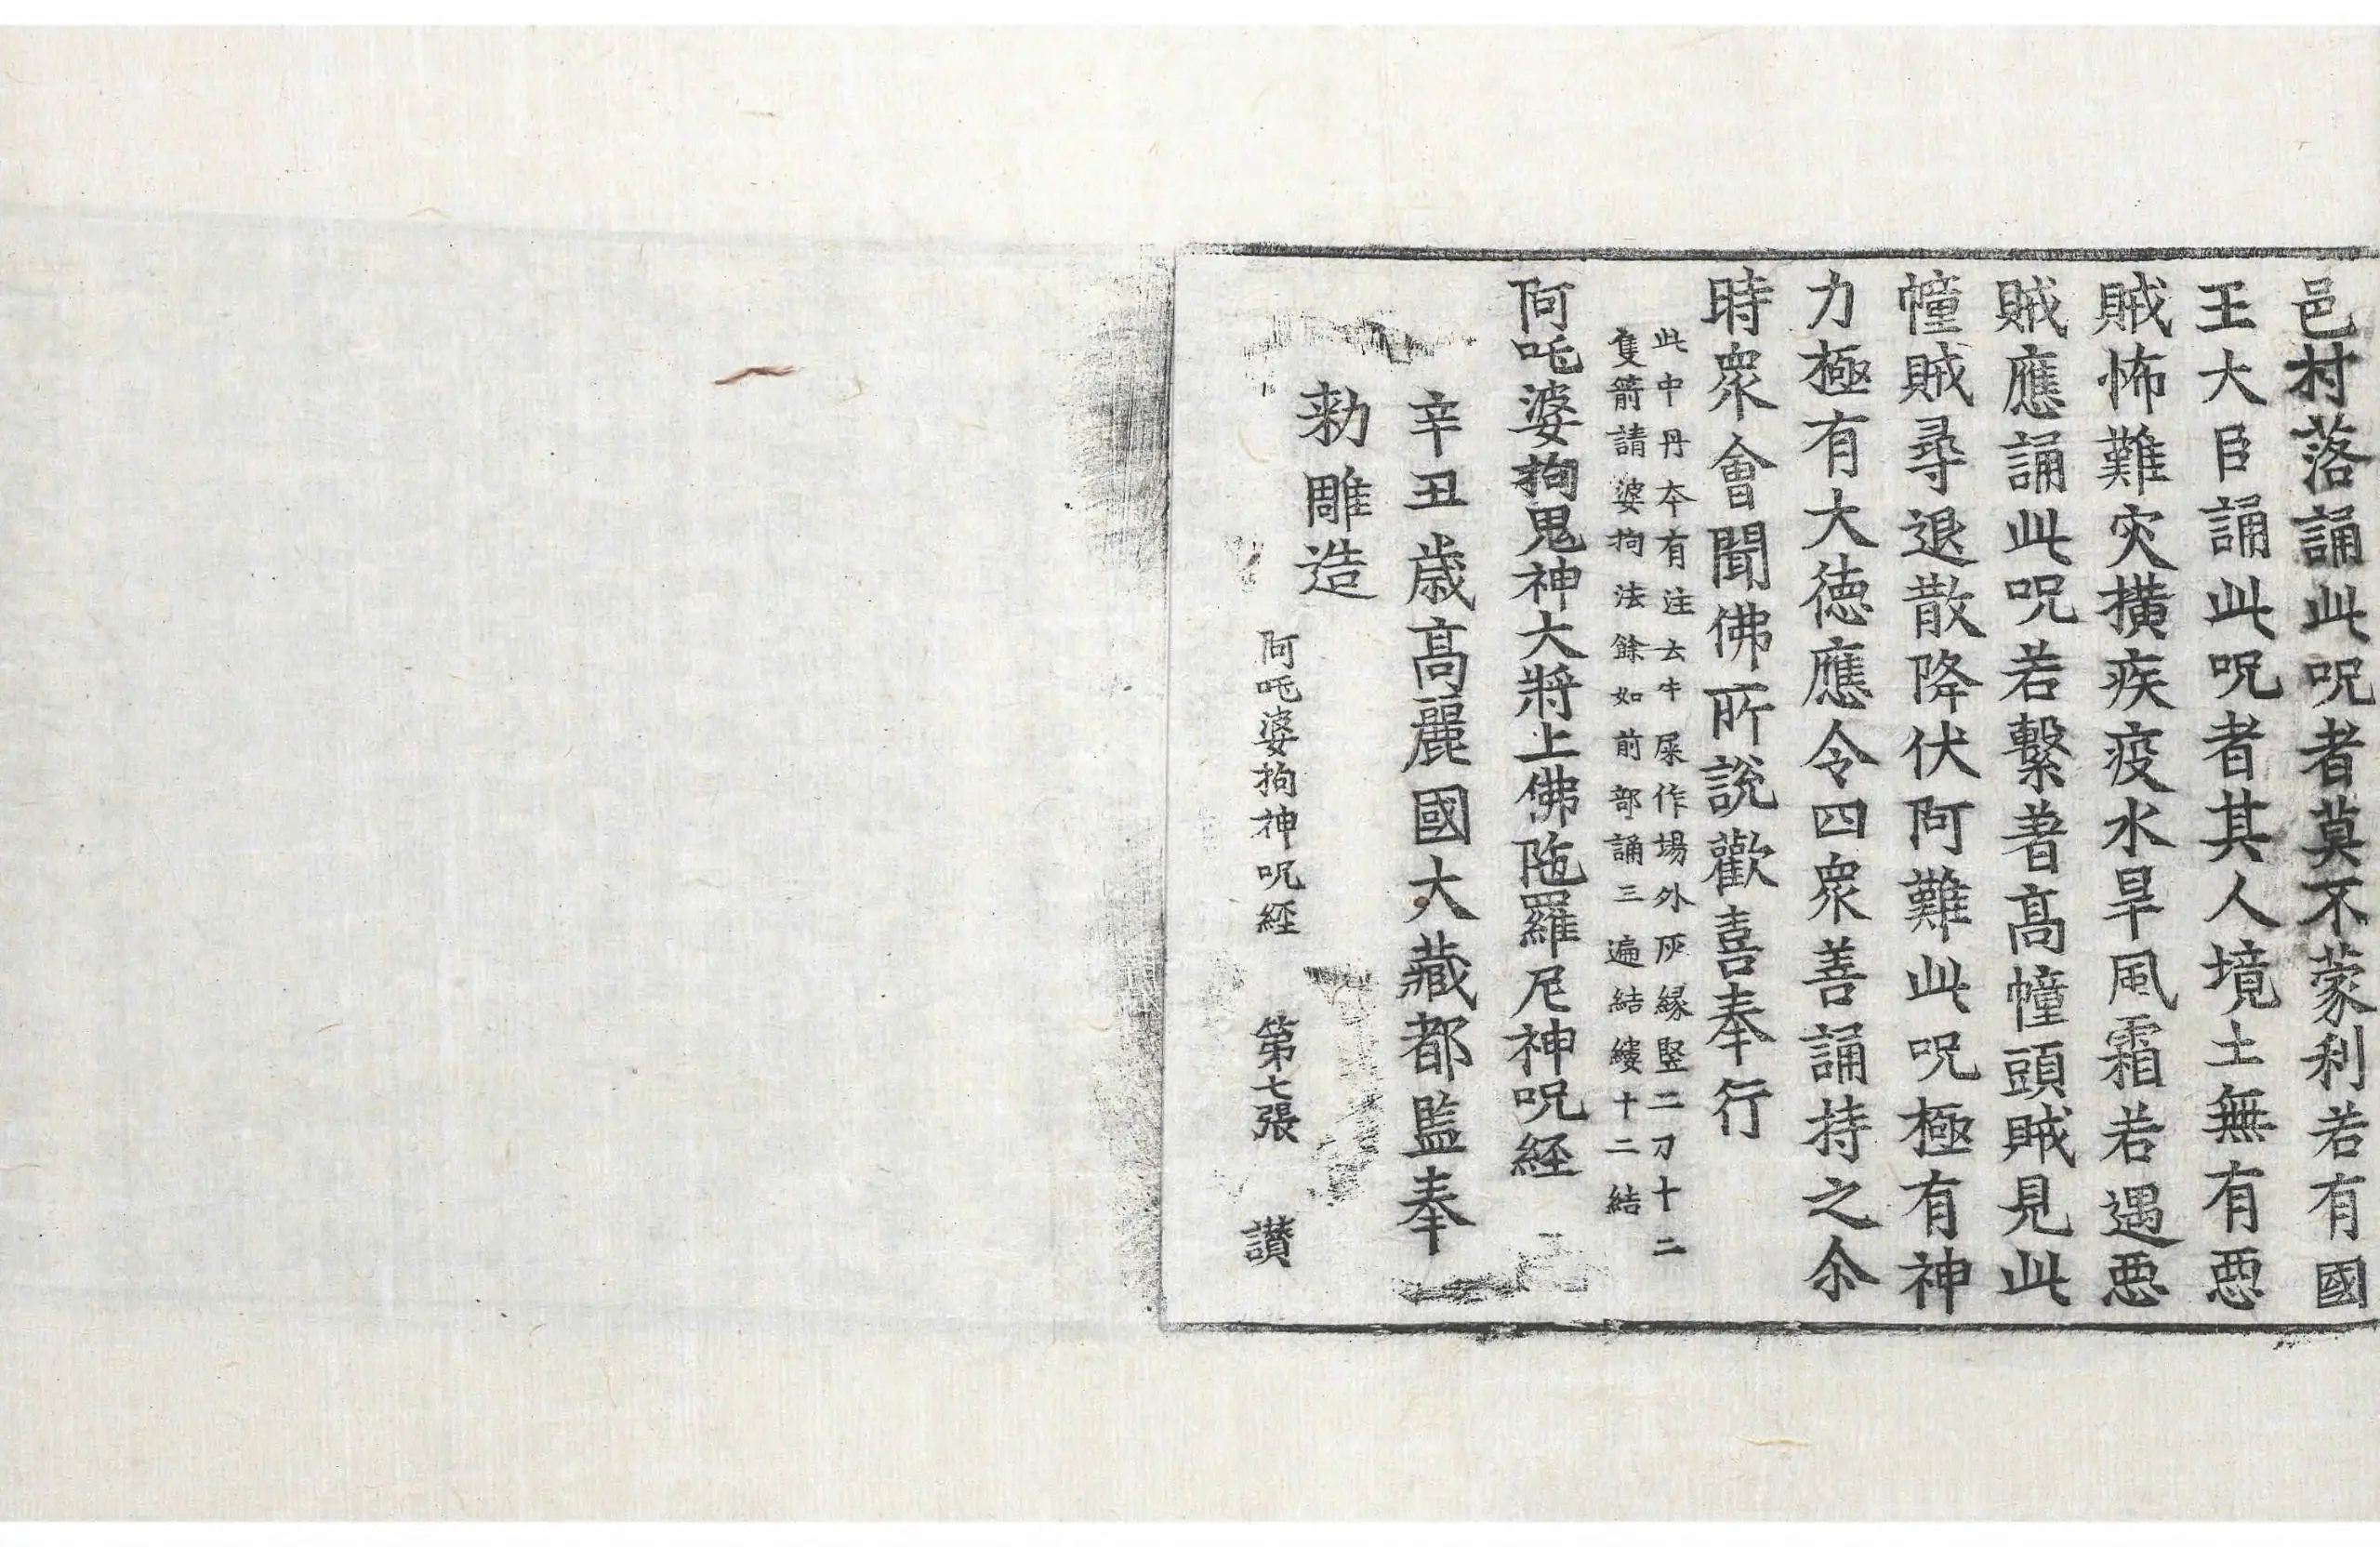 邑村落誦此呪者莫不蒙利若有國
王大臣誦此呪者其人境土無有惡
賊怖難灾撗疾疫水旱風霜若遇惡
賊應誦此呪若繫著髙幢頭賊見此
幢賊尋退散降伏阿難此呪極有神
力極有大德應令四衆善誦持之尒
時衆會聞佛所說歡喜奉行
此中丹夲有注云牛屎作場外灰緣竪二刀十二
隻箭請婆拘法餘如前部誦三遍結縷十二結
阿吒婆拘鬼神大將上佛陁羅尼神呪経
辛丑歲髙麗國大藏都監奉
勑雕造
阿吒婆拘神呪経 第七張 讃